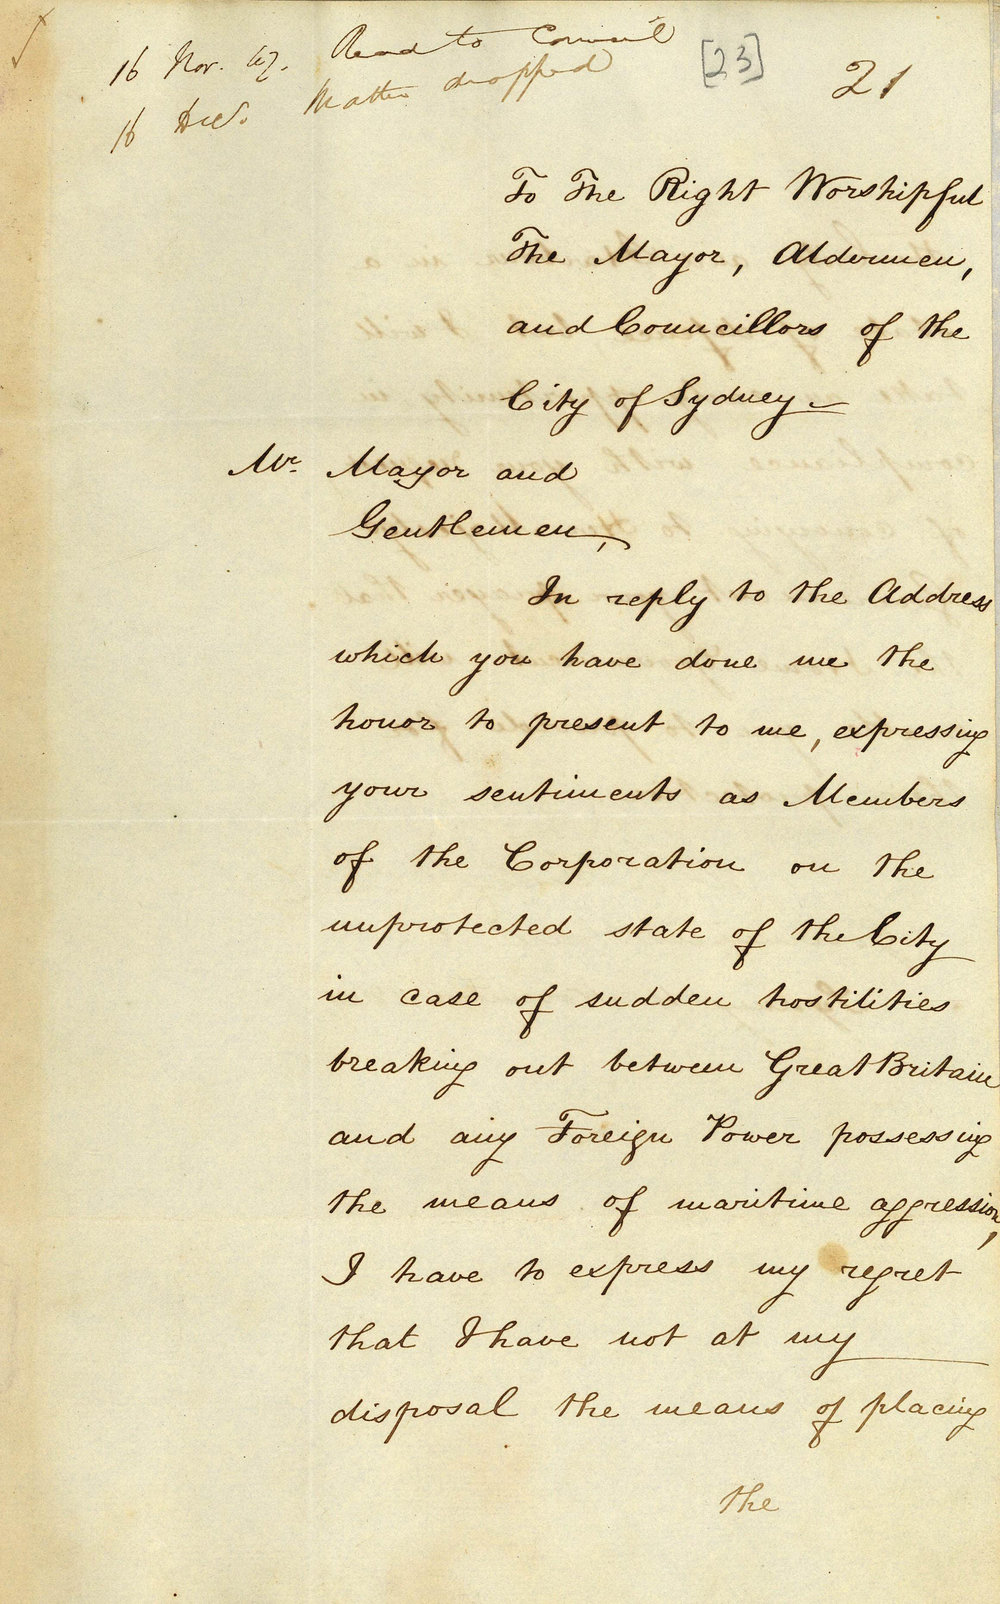 16 Nov. 47. Read to Council
16 Dec. Matter dropped
[23]
21
To The Right Worshipful
The Mayor, Aldermen,
and Councillors of the
City of Sydney
Mr. Mayor and
Gentlemen,
In reply to the Address
which you have done me the
honor to present to me, expressing
your sentiments as Members
of the Corporation on the
unprotected state of the City
in case of sudden hostilities
breaking out between Great Britain
and any Foreign Power possessing
the means of maritime aggression,
I have to express my regret
that I have not at my
disposal the means of placing
the